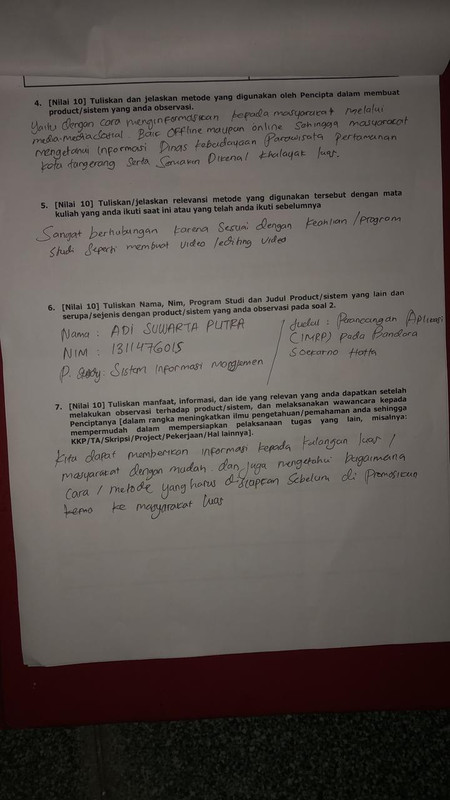 4. [Nilai 10] Tuliskan dan jelaskan metode yang digunakan oleh Pencipta dalam membuat
product/sistem yang anda observasi.
Yaitu dengan cara menginformasikan kepada masyarakat melalui
media-media sosial. Baik offline maupun online sehingga masyarakat
mengetahui informasi Dinas kebudayaan Pariwisata Pertamanan
kota tangerang serta semakin Dikenal khalayak luas.
5. [Nilai 10] Tuliskan/jelaskan relevansi metode yang digunakan tersebut dengan mata
kuliah yang anda ikuti saat ini atau yang telah anda ikuti sebelumnya
Sangat berhubungan karena sesuai dengan keahlian/program
studi seperti membuat video/editing video
6. [Nilai 10] Tuliskan Nama, Nim, Program Studi dan Judul Product/sistem yang lain dan
serupa/sejenis dengan product/sistem yang anda observasi pada soal 2.
Nama : ADI SUWARTA PUTRA
NIM : 1311476015
P. Study: Sistem Informasi Manajemen
Judul : Perancangan Aplikasi
(IMRP) pada Bandara
Soekarno Hatta
7. [Nilai 10] Tuliskan manfaat, informasi, dan ide yang relevan yang anda dapatkan setelah
melakukan observasi terhadap product/sistem, dan melaksanakan wawancara kepada
Penciptanya [dalam rangka meningkatkan ilmu pengetahuan/pemahaman anda sehingga
mempermudah dalam mempersiapkan pelaksanaan tugas yang lain, misalnya:
KKP/TA/Skripsi/Project/Pekerjaan/Hal lainnya].
Kita dapat memberikan informasi kepada kalangan luas /
masyarakat dengan mudah dan juga mengetahui bagaimana
cara / metode yang harus disiapkan sebelum di promosikan
ke masyarakat luas